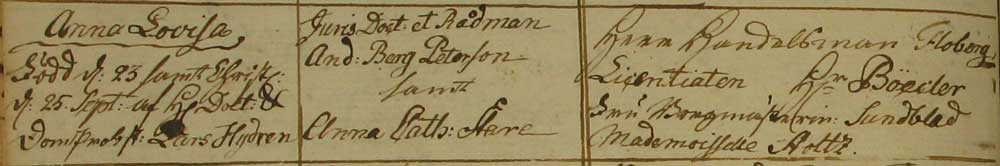 Anna Lovisa,
Född d: 23 samt Christ:
d. 25. Sept: af H: Doct: &
Domprobst: Lars Hydren
Juris Doct: et Rådman
And: Berg Peterson
samt
Anna Cath: Stare
Herr Handelsman Floberg
Licentiaten Hr Böeder
Fru Borgmästerin: Sundblad
Mademoiselle Holtz.